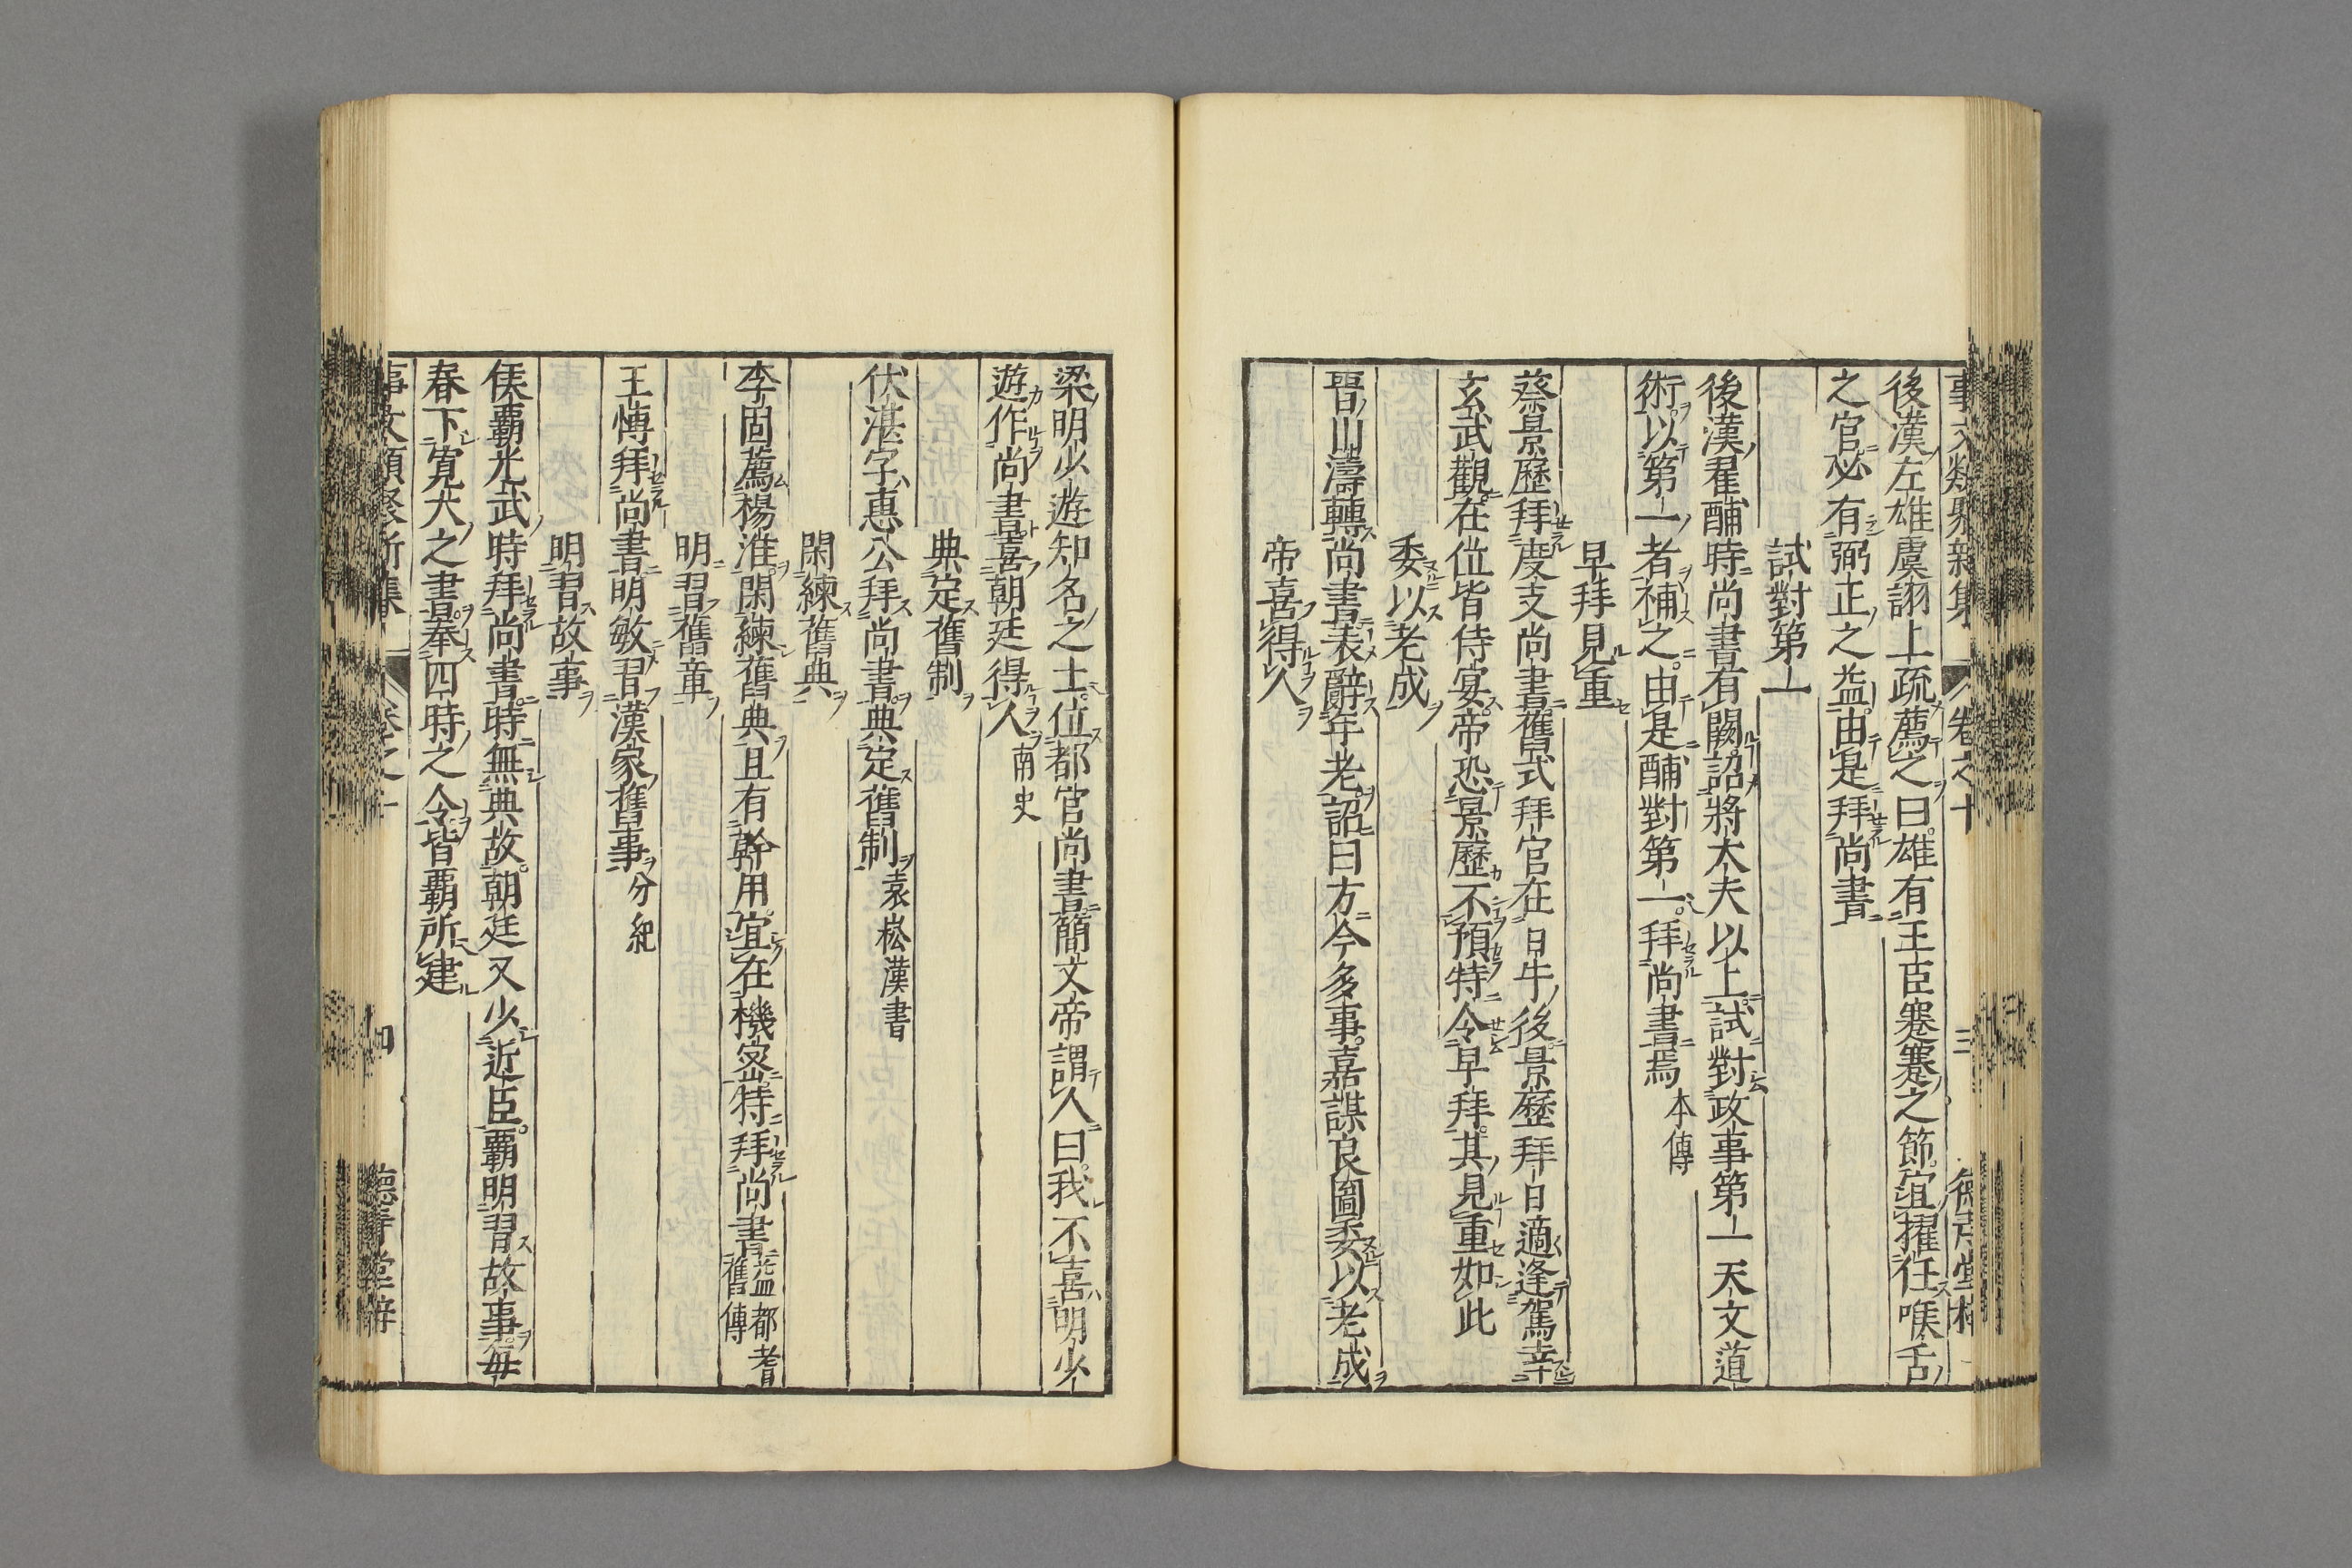 後漢左雄虞詡上疏薦之曰雄有王臣蹇蹇之節宜擢在喉舌
之官必有弼正之益由是拜尚書
試對第一
後漢翟酺時尚書有闕詔將大夫以上試對政事第一天文道
術以第一者補之由是酺對第一拜尚書焉 本傳
早拜見重
蔡景歷拜度支尚書舊式拜官在日午後景歷拜日適逢駕幸
玄武觀在位皆侍宴帝恐景歷不預特令早拜其見重如此
委以老成
晉山濤轉尚書表辭年老詔曰方今多事嘉謀良圖委以老成
帝喜得人
梁明少遊知名之士位都官尚書簡文帝謂人曰我不喜明少
遊作尚書喜朝廷得人 南史
典定舊制
伏湛字惠公拜尚書典定舊制 袁崧漢書
閑練舊典
李固薦楊淮閑練舊典且有幹用宜在機密特拜尚書 益都耆舊傳
明習舊章
王博拜尚書明敏習漢家舊事 分紀
明習故事
侯霸光武時拜尚書時無典故朝廷又少近臣霸明習故事每
春下寬大之書奉四時之令皆霸所建